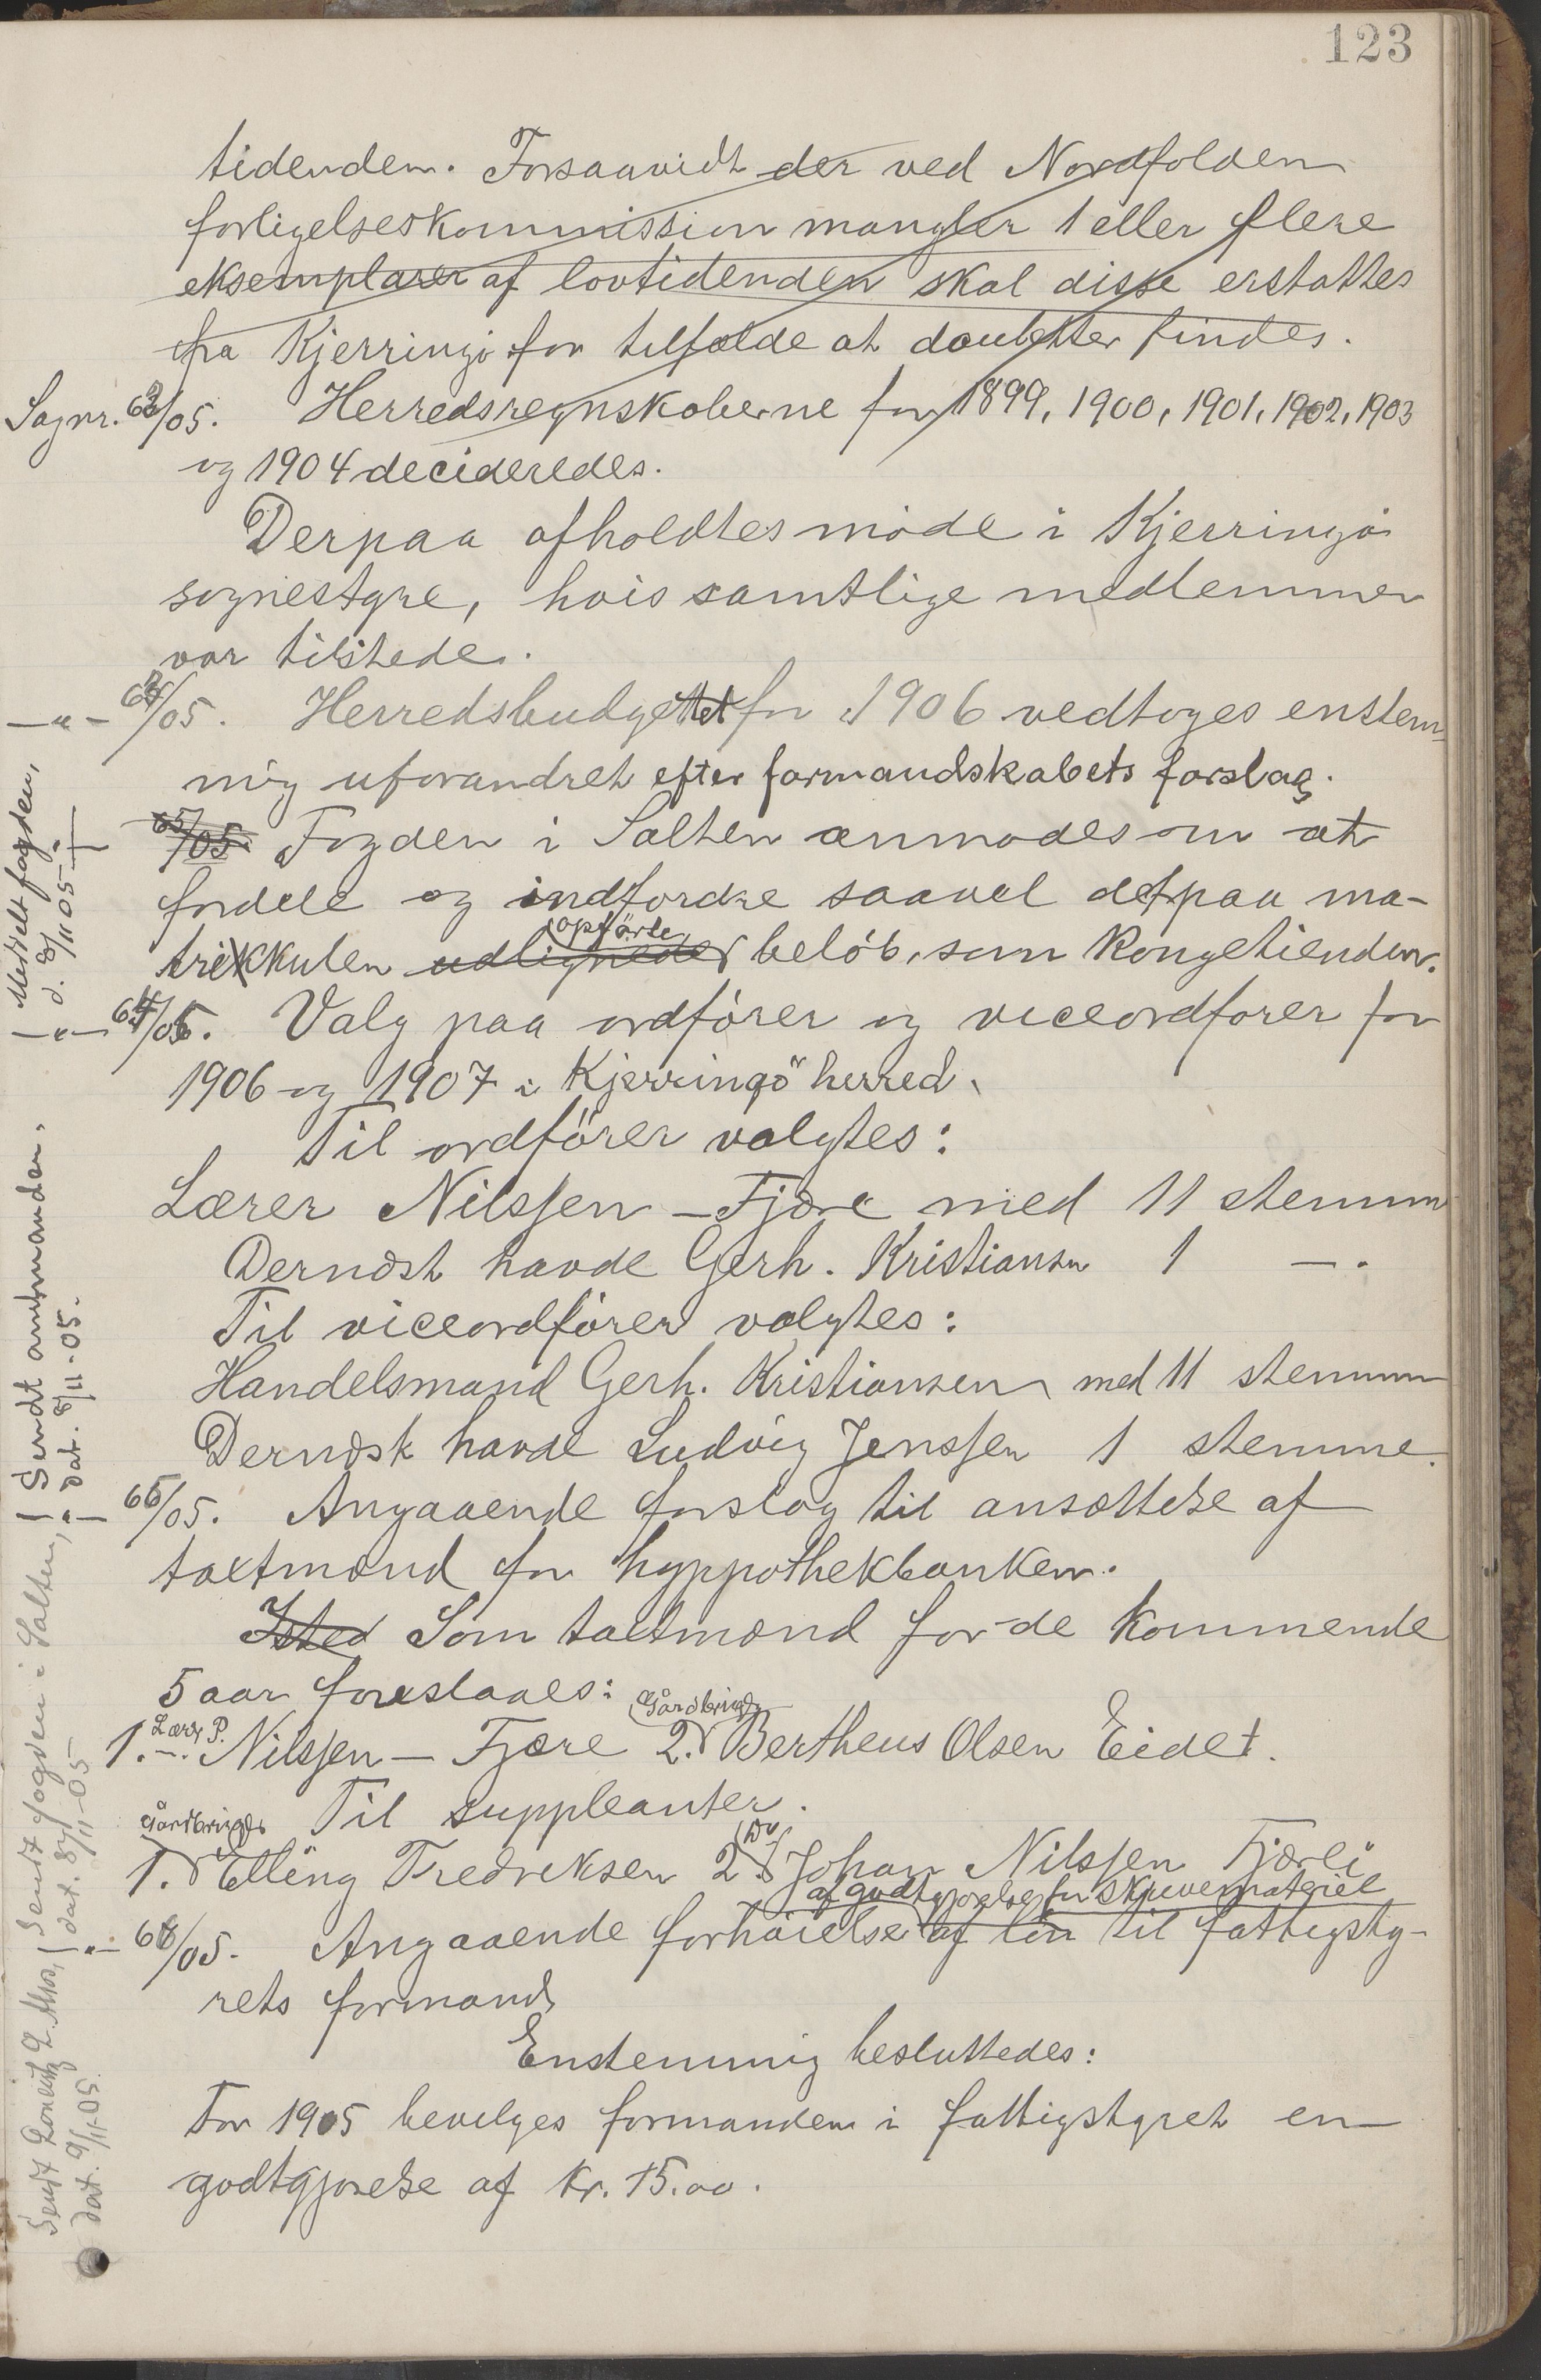 123
tidenden. Forsaavidt der ved Nordfolden
forligelseskommission mangler 1 eller flere
eksemplarer af lovtidenden skal disse erstattes
fra Kjerringö for tilfælde at doubletter findes.
Sagnr. 62/05. Herredsregnskaberne for 1899, 1900, 1901, 1902, 1903
og 1904 decideredes.
Derpaa afholdtes möde i Kjerringö
sognestyre, hvis samtlige medlemmer
var tilstede.
-"- 63/05. Herredsbudgettet for 1906 vedtoges enstem-
mig uforandret efter formandskabets forslag.
65/05. Fogden i Salten anmodes om at
fordele og indfordre saavel det paa ma-
trikkulen udlignede opförte belöb, som Kongetienden.
-"- 64/05. Valg paa ordförer og viceordförer for
1906 og 1907 i Kjerringö herred.
Til ordförer valgtes:
Lærer Nilssen - Fjære med 11 stemmer
Dernæst havde Gerh. Kristiansen 1 -.
Til viceordförer valgtes:
Handelsmand Gerh. Kristiansen med 11 stemmer
Dernæst havde Ludvig Jenssen 1 stemme.
-"- 65/05. Angaaende forslag til ansættelse af
taxtmænd for hyppothekbanken.
Isted Som taxtmænd for de kommende
5 aar foreslaaes:
1. Lærer P. Nilssen - Fjære 2. Gårdbruger Bertheus Olsen Eidet.
Til suppleanter.
1. Gårdbruger Elling Fredreksen 2. Do Johan Nilssen Fjære
-"- 66/05. Angaaende forhöielse af lön af godtgjörelse for skrivemateriel til fattigsty-
rets formand
Enstemmig besluttedes:
For 1905 bevilges formanden i fattigstyret en
godtgjörelse af Kr. 15.00.
Meddelt fogden,
d. 8/11 05
Sendt amtmanden,
dat. 8/11-05.
Sendt fogden i Salten,
dat. 8/11-05
dat. 9/11-05.